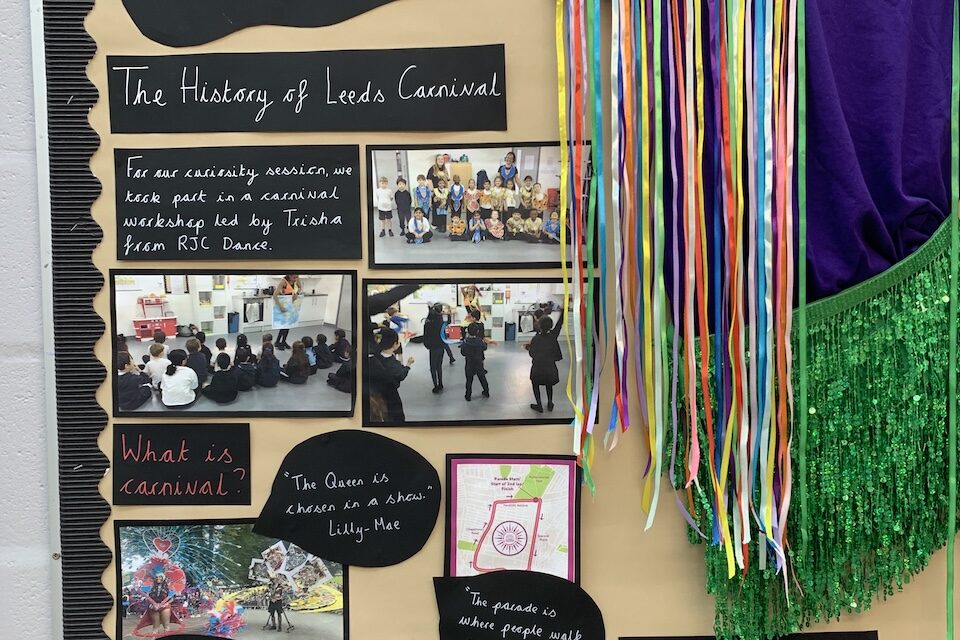 The History of Leeds Carnival
For our curiosity session, we
took part in a carnival
workshop led by Trisha
from RJC Dance.
What is
carnival?
"The Queen is
chosen in a show."
Lilly-Mae
Parade Start/
Start of 2nd lap
Finish
"The parade is
where people walk